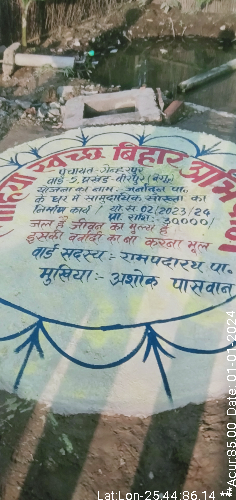 लोहिया स्वच्छ बिहार अभि
पंचायत-
वार्ड 5, प्रखंड-वीरपुर (बेगू०)
योजना का नाम:- जनार्दन पा०
के घर में सामुदायिक सोख्ता का
निर्माण कार्य / यो.सं 02/2023/24
प्रा. राशि:- 30000/
जल है जीवन का मुल्य है
इसकी बर्बादी का ना करना भूल
वार्ड सदस्य:- रामपदारथ पा०
मुखिया:- अशोक पासवान
Lat:Lon-25.44:86.14 **
**Acur:85.00 Date: 01-01-2024